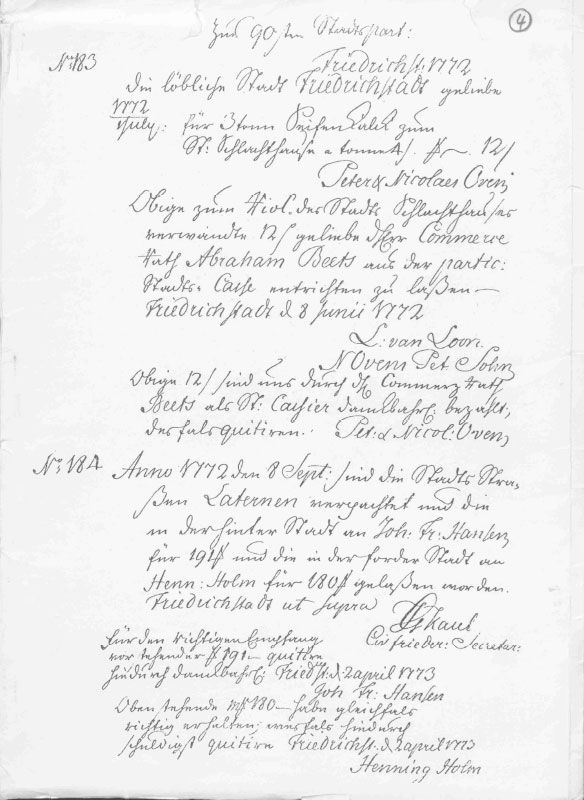 Zum 90sten Stadtspart:
4
No 183
Friedrichst: 1772
die löbliche Stadt Friedrichstadt geliebe
1772
July: für 3 tonn Seifen Kalck zum
St: Schlachthause a tonne 4/. 12/
Peter & Nicolaes Ovens
Obige zum des Stadts Schlachthauses
verwandte 12/ geliebe Commerce
Rath Abraham Beets aus der partic:
Stadts-Casse entrichten zu laßen —
Friedrichstadt d 8 Junii 1772
L: van Loon.
N Ovens Pet. Sohn
Obige 12/ sind uns durch Commerz Rath
Beets als St: Cassier danckbahrl. bezahlt,
desfals quitiren. Pet: & Nicol: Ovens
No 184
Anno 1772 den 8 Sept: sind die Stadts Stra-
ßen Laternen verpachtet und die
in der hinter Stadt an Joh: Fr: Hansen
für 191 und die in der forder Stadt an
Henn: Holm für 180 gelaßen worden.
Friedrichstadt ut supra
Civ frieder: Secretar:
Für den richtigen Empfang
vor stehender 191 — quitire
hiedurch danckbahrl: Friedst: d. 2 april 1773
Joh Fr: Hansen
Oben stehende 180 — habe gleichfals
richtig erhalten; hiedurch
schuldigst quitire Friedrichst. d. 2 april 1773
Henning Holm